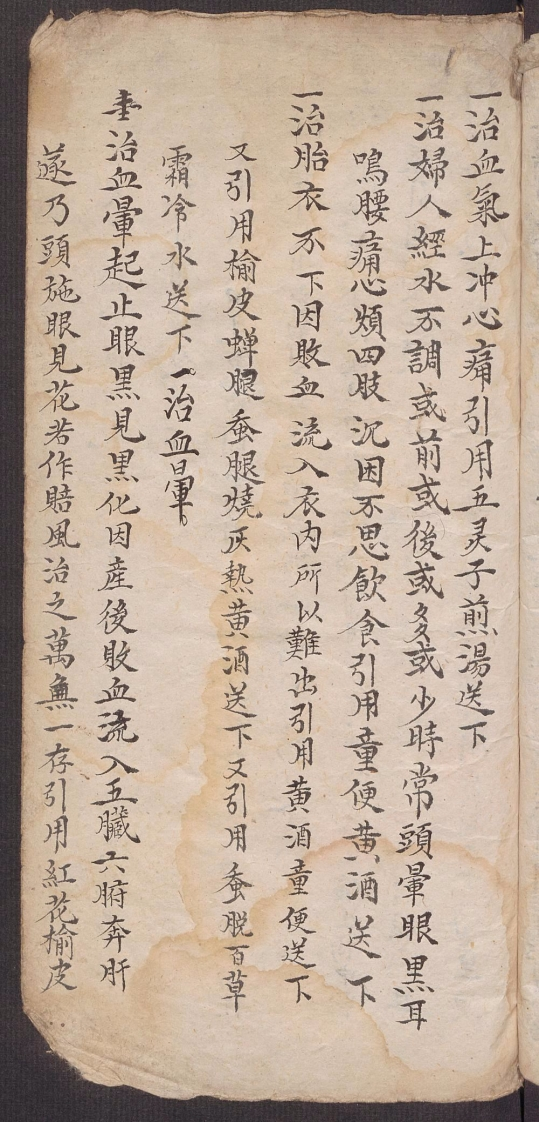 一治血氣上冲心痛引用五灵子煎湯送下
一治婦人經水不調或前或後或多或少時常頭暈眼黑耳
鳴腰痛心煩四肢沉困不思飲食引用童便黄酒送下
一治胎衣不下因敗血流入衣内所以難出引用黄酒童便送下
又引用榆皮蝉腿蚕腿燒灰熱黄酒送下又引用蚕脱百草
霜冷水送下一治血暈
治血暈起止眼黒見黒化因産後敗血流入五臟六腑奔肝
遂乃頭施眼見花若作賠風治之萬無一存引用紅花榆皮